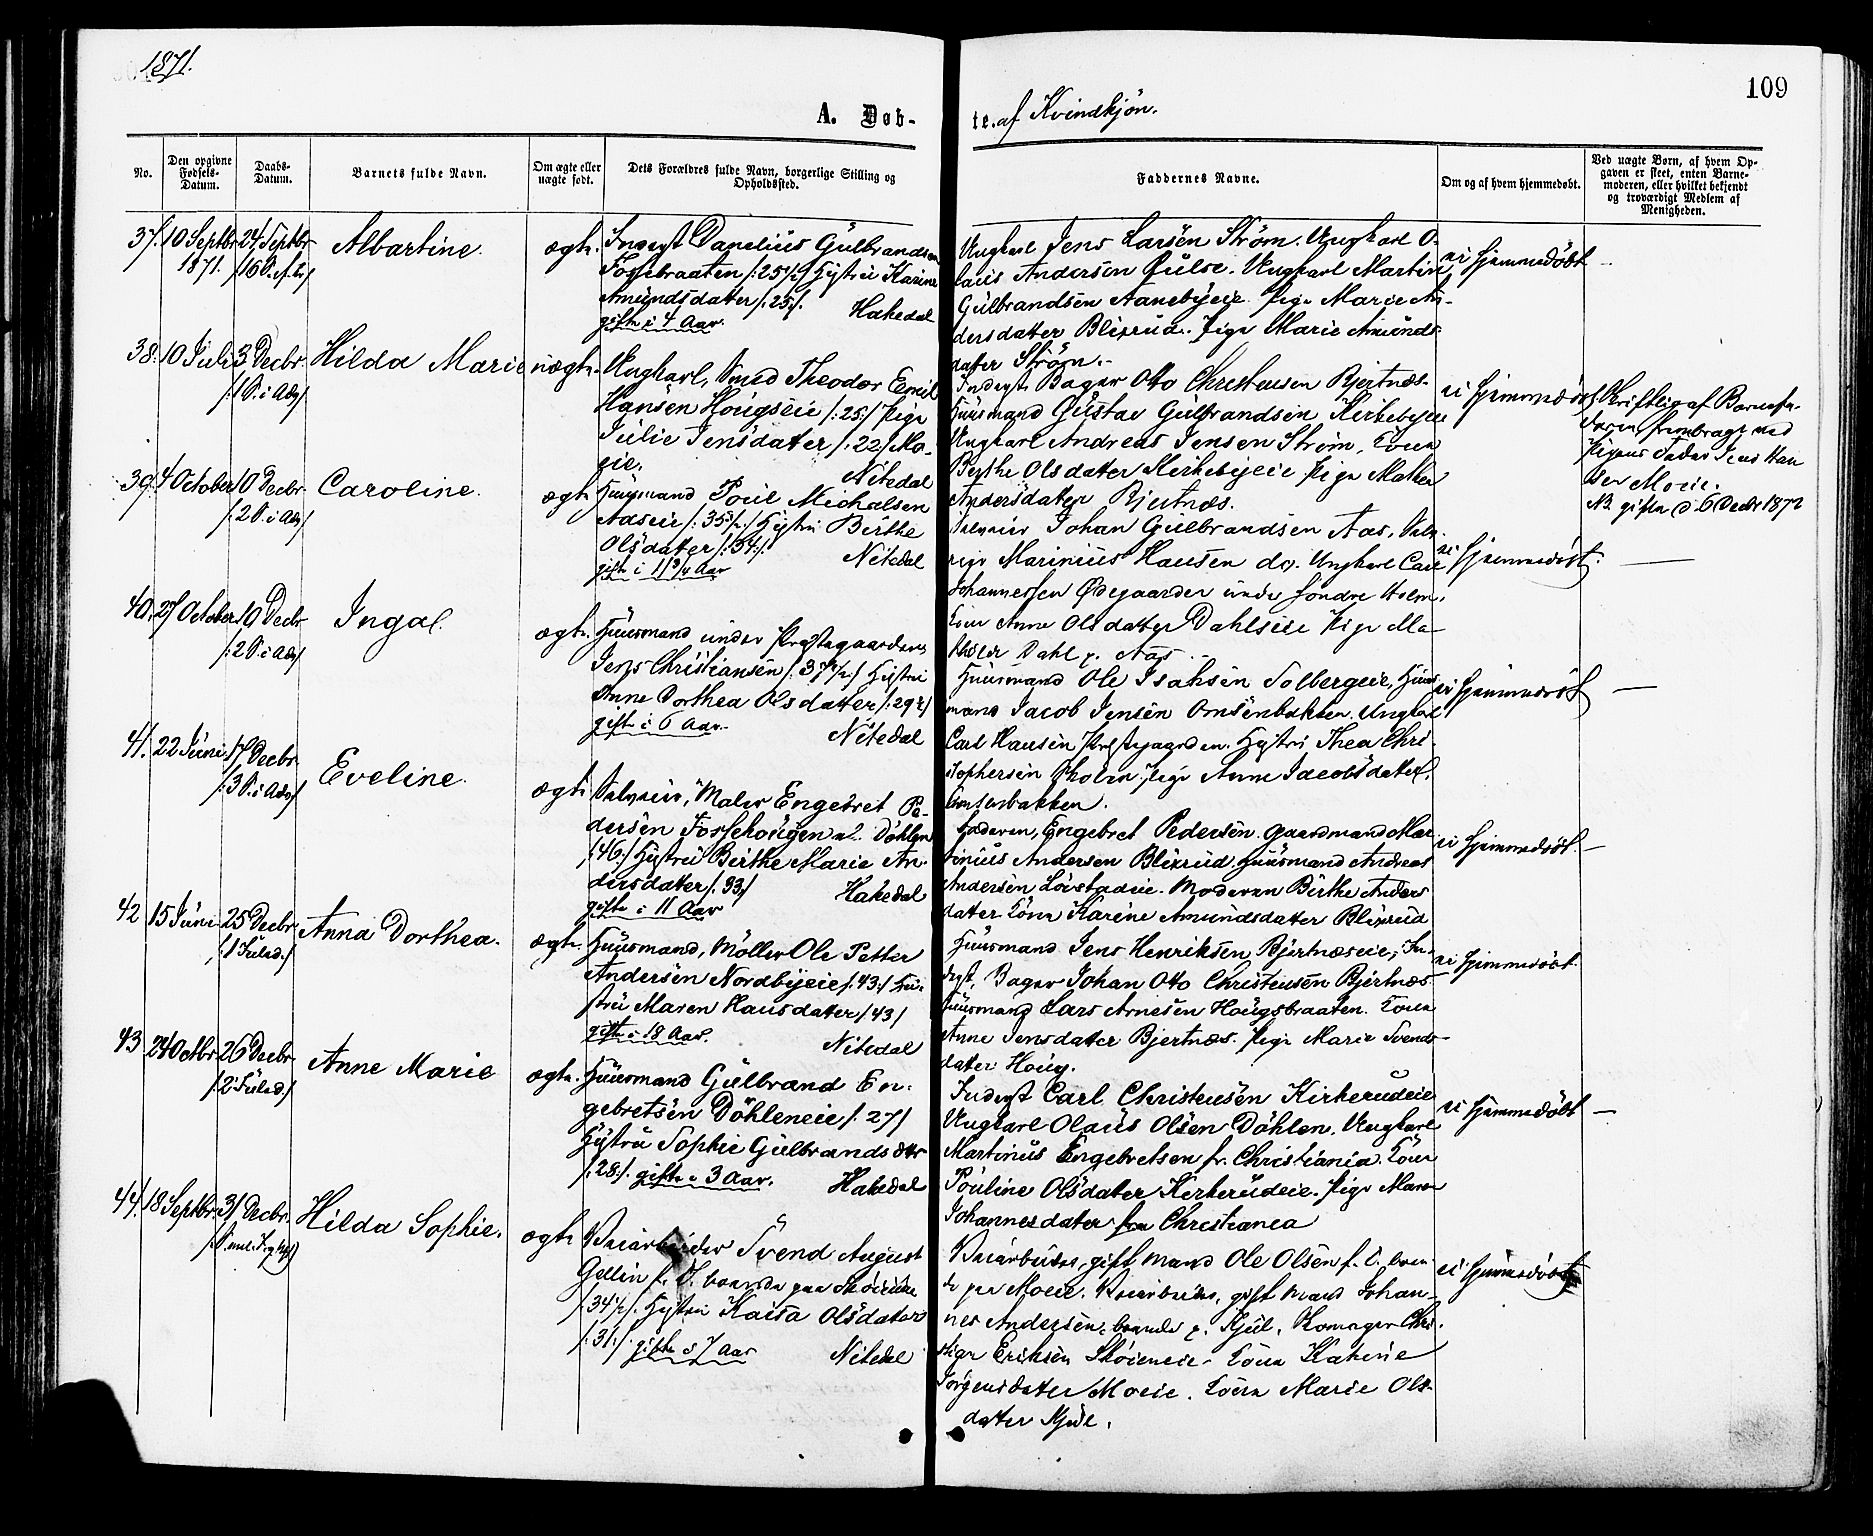 1871.
109
A. Døb-
te. af Kvindkjön.
No.
Den opgivne Fødsels-Datum.
Daabs-Datum.
Barnets fulde Navn.
Om ægte eller uægte født.
Dets Forældres fulde Navn, borgerlige Stilling og Opholdssted.
Faddernes Navne.
Om og af hvem hjemmedøbt.
Ved uægte Børn, af hvem Op-
gaven er skeet, enten Barne-
moderen, eller hvilket bekjendt
og troværdigt Medlem af
Menigheden.
37. 10 Septbr 1871. 24 Septbr Albartine. ægte.
Inderst Danelius Gülbrandsen
Fossebraaten /: 25 1/2 / Hüstrü Karine
Amündsdatter /: 25 :/.
Hakedal
gifte i 4 Aar.
Ungkarl Jens Larsen Ström. Ungkarl O-
laüs Andersen. Ungkarl Martin
Gülbrandsen Aanebyeie. Pige Marie An-
dersdatter Blixrud. Pige Marie Amünds-
datter Ström.
ei hjemmedöbt
38. 10 Juli 3 Decbr. /1 S. i Adv/ Hilda Marie uægte.
Ungkarl, Smed Theodor Emil
Hansen Hougseie /: 25 :/ Pige
Julie Jensdater /: 22 / Mo-
eie.
Nitedal
Inderst Bager Otto Christensen Bjertnæs.
Hüüsmand Güstav Gülbrandsen Kirkebyeie
Ungkarl Andreas Jensen Ström, Kona
Berthe Olsdatter Kirkebyeie Pige
Andersdatter Bjertnæs.
ei hjemmedöbt
Skriftlig af Barnefa-
deren, frembragt ved
Pigens Fader Jens Han
sen Moeie.
NB. gifte d. 6 Decbr 1872
39. 4 October 10 Decbr /: 2 S. i Adv/ Caroline. ægte
Hüüsmand Poül Michalsen
Aaseie /: 35 1/2 / Hüstrü Birthe
Olsdatter /: 34 :/.
gifte i 11 3/4 Aar
Nitedal
Selveier Johan Gülbrandsen Aas, Selv-
eier Marinius Hansen do. Ungkarl Carl
Johannessen Ödegaarden under söndre Holm.
Kone Anne Olsdatter Dahlseie Pige Ma-
Dahl p. Aas.
ei hjemmedöbt.
40. 27 October 10 Decbr /: 2 S. i Adv/ Inga. ægte.
Hüüsmand under Præstegaarden
Jens Christiansen /: 37 1/2 / Hüstrü
Anne Dorthea Olsdatter /: 29 :/
gifte i 6 Aar.
Nitedal
Hüüsmand Ole Isaksen Solbergeie, Hüüs-
mand Jacob Jensen Omsenbakken. Ungkarl
Carl Hansen Præstegaarden. Hüstrü Thea Chri-
stophersen. Pige Anne Jacobsdatter,
Omsenbakken.
ei hjemmedöbt
41. 22 Juni 17 Decbr. /: 3 S. i Adv/ Eveline. ægte
Selveier, Maler Engebret Pe-
dersen Fossehougen Döhlen
/: 46 :/ Hüstrü Birthe Marie An-
dersdatter /: 33 /
gifte i 11 Aar
Hakedal
Faderen, Engebret Pedersen. Gaardmand Mar-
tiniüs Andersen Blixrud. Hüüsmand Andreas
Andersen. Moderen Birthe Anders-
datter Kona Karine Amündsdatter Blixrud
ei hjemmedöbt.
42 15 Juni 25 Decbr. /: 1 Juled :/ Anna Dorthea. ægte.
Hüüsmand, Möller Ole Petter
Andersen Nordbyeie /: 43 :/ Hü-
strü Maren Hansdatter / 43 /
gifte i 18 Aar.
Nitedal
Hüüsmand Jens Henriksen Bjertnæseie, In-
derst, Bager Johan Otto Christensen Bjertnæs.
Hüüsmand Lars Arnesen Hougsbraaten. Kona
Anne Jensdatter Bjertnæs. Pige Marie Svends-
datter Houg.
ei hjemmedöbt.
43 24 Octbr. 26 Decbr. /: 2 Juled :/ Anne Marie ægte.
Hüüsmand Gülbrand En-
gebretsen Döhleneie /: 27 /
Hüstrü Sophie Gülbrandsdtr
/: 28 :/. gifte i 3 Aar.
Hakedal
Inderst Carl Christensen Kirkerudeie
Ungkarl Olaüs Olsen Döhlen. Ungkarl
Martinüs Engebretsen fr. Christiania. Kona
Pöuline Olsdatter Kirkerüdeie. Pige Maren
Johannesdater fra Christiania
ei hjemmedöbt
44. 18 Septbr. 31 Decbr. Hilda Sophie. ægte
Veiarbeider Svend August
Gellin f. S. boende paa Sköieneie
/: 34 1/2 /. Hüstrü Kaisa Olsdater
/: 31 :/. gifte i 7 Aar
Nitedal
Veiarbeider, gift Mand Ole Olsen f. S. boen-
de paa Moeie. Veiarbeider, gift Mand Johan-
nes Andersen, boende p. Kjül. Skomager Chri-
stian Eriksen Skøieneie. Kona Katrine
Jörgensdatter Moeie. Kona Marie Ols-
datter Kjül.
ei hjemmedöbt